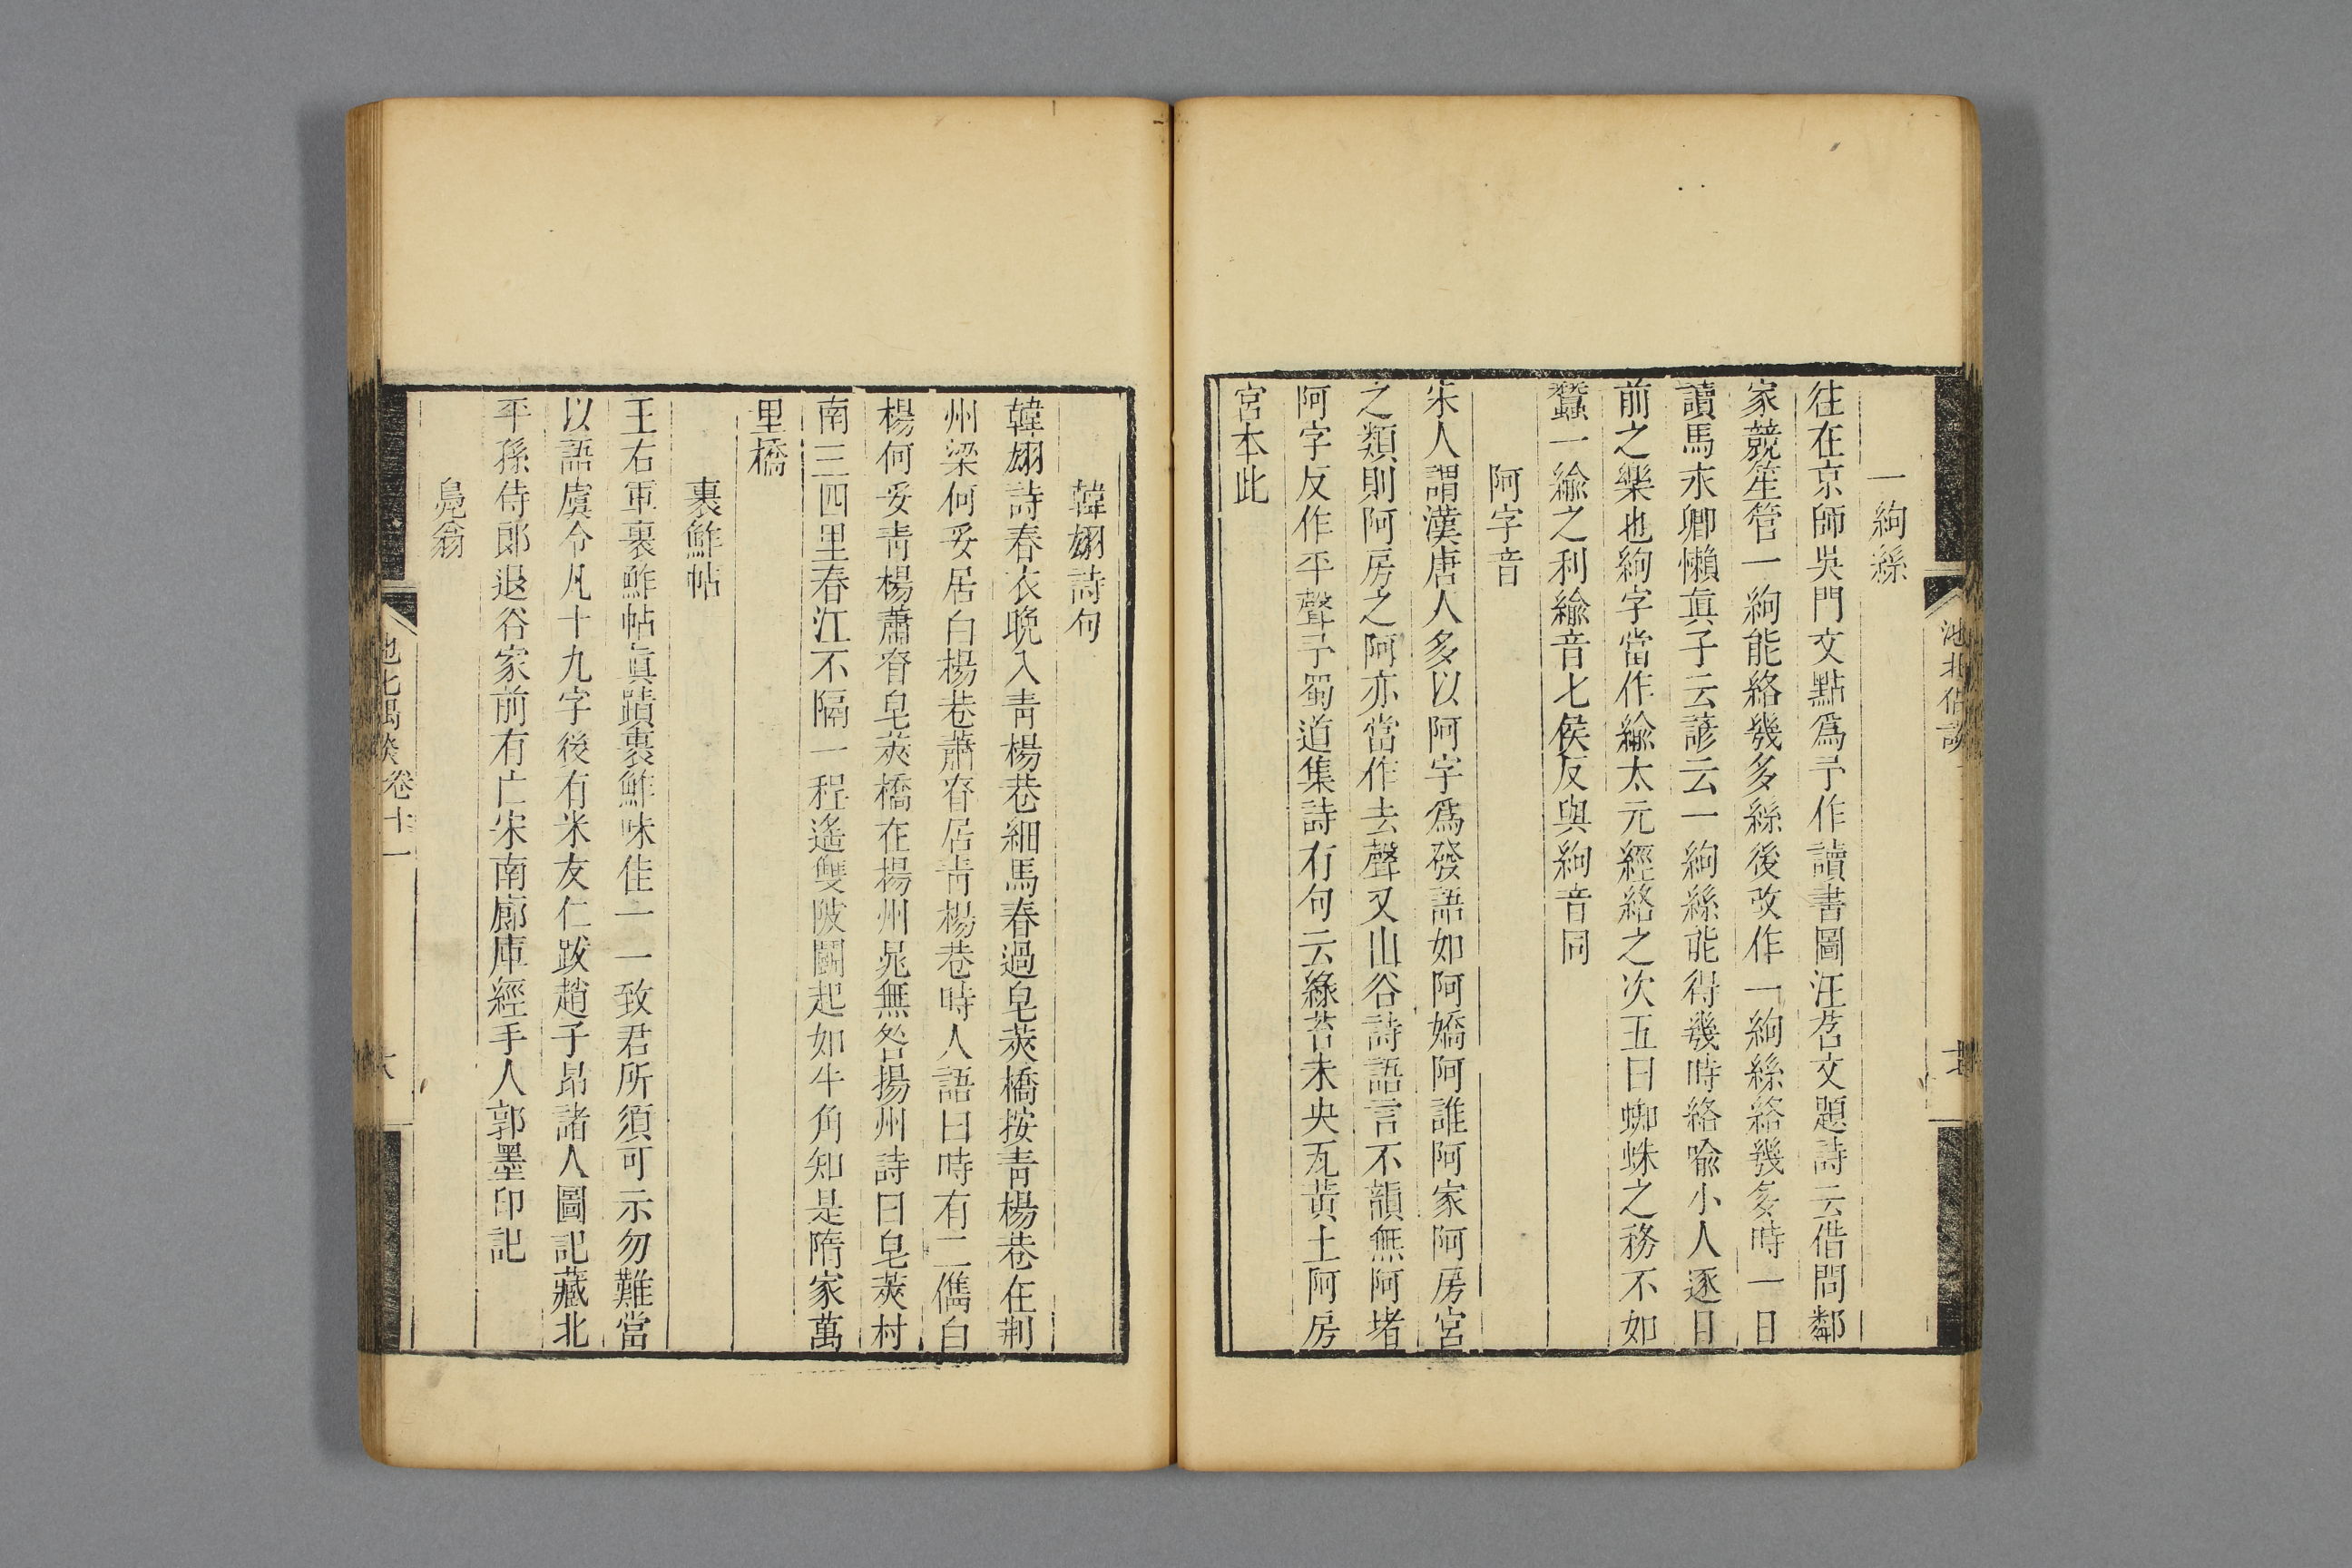 一絇絲
往在京師吳門文點爲予作讀書圖汪苕文題詩云借問鄰
家競笙管一絇能絡幾多絲後改作一絇絲絡幾多時一日
讀馬永卿懶眞子云諺云一絇絲能得幾時絡喩小人逐日
前之樂也絇字當作緰太元經絡之次五曰蜘蛛之務不如
蠶一緰之利緰音七侯反與絇音同
阿字音
宋人謂漢唐人多以阿字爲發語如阿嬌阿誰阿家阿房宮
之類則阿房之阿亦當作去聲又山谷詩語言不韻無阿堵
阿字反作平聲予蜀道集詩有句云綠苔未央瓦黃土阿房
宮本此
池北偶談
韓翃詩句
韓翃詩春衣晚入青楊巷細馬春過皂莢橋按青楊巷在荆
州梁何妥居白楊巷蕭眘居青楊巷時人語曰時有二儁白
楊何妥青楊蕭眘皂莢橋在揚州晁無咎揚州詩曰皂莢村
南三四里春江不隔一程遙雙陂鬭起如牛角知是隋家萬
里橋
裹鮓帖
王右軍裹鮓帖眞蹟裹鮓味佳一一致君所須可示勿難當
以語虞令凡十九字後有米友仁跋趙子昻諸人圖記藏北
平孫侍郎退谷家前有亡宋南廊庫經手人郭墨印記
鳧翁
卷十一